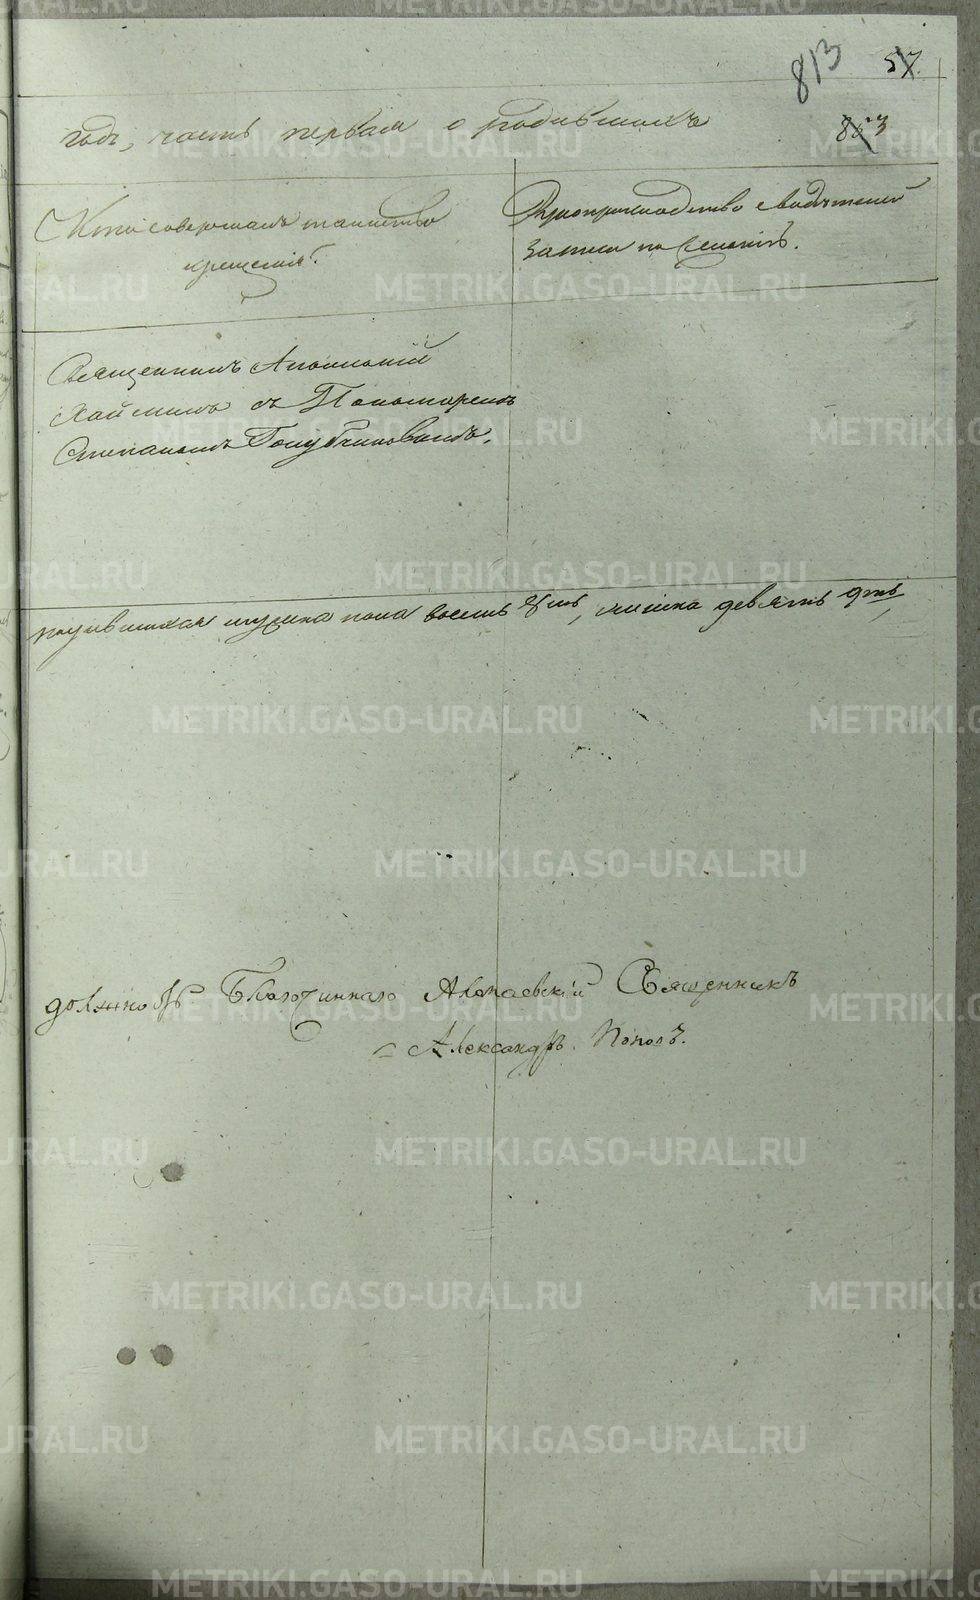 813 57.
годъ, часть первая о родившихся
803
Кто совершалъ таинство
крещенія.
Рукоприкладство свидѣтелей
записи по желанію.
Священникъ Аполлоній
Хаймин съ Пономаремъ
Степаномъ Голубчиковымъ.
родившихся мужска пола восемь, женска девять
должность Благочиннаго Алапаевскій Священникъ
Александръ Поповъ.
METRIKI.GASO-URAL.RU